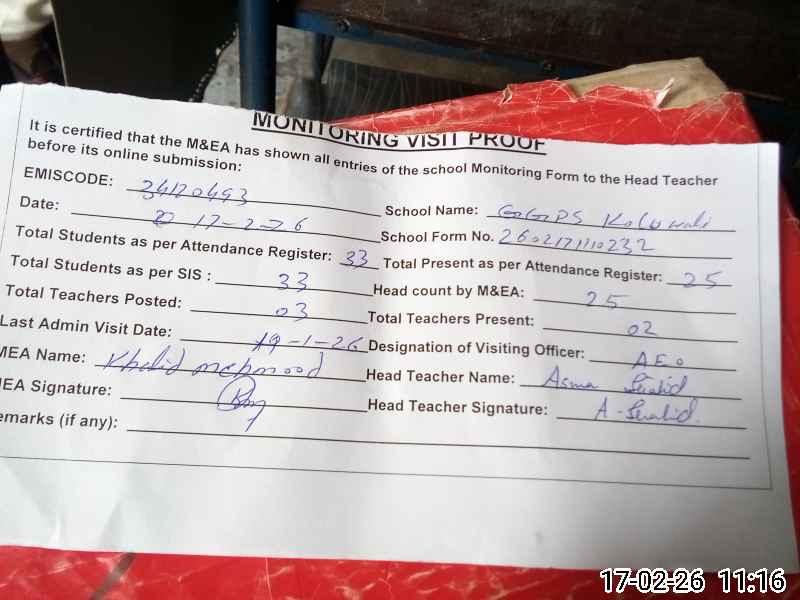 MONITORING VISIT PROOF
It is certified that the M&EA has shown all entries of the school Monitoring Form to the Head Teacher
before its online submission:
EMISCODE: 34120493
School Name: GGPS Kolowali
Date: 17-2-26
School Form No. 2602171110232
Total Students as per Attendance Register: 33
Total Present as per Attendance Register: 25
Total Students as per SIS : 33
Head count by M&EA: 25
Total Teachers Posted: 03
Total Teachers Present: 02
Last Admin Visit Date: 19-1-26
Designation of Visiting Officer: AEO
MEA Name: Khalid mehmood
Head Teacher Name: Asma
MEA Signature:
Head Teacher Signature: A-
emarks (if any):
17-02-26 11:16